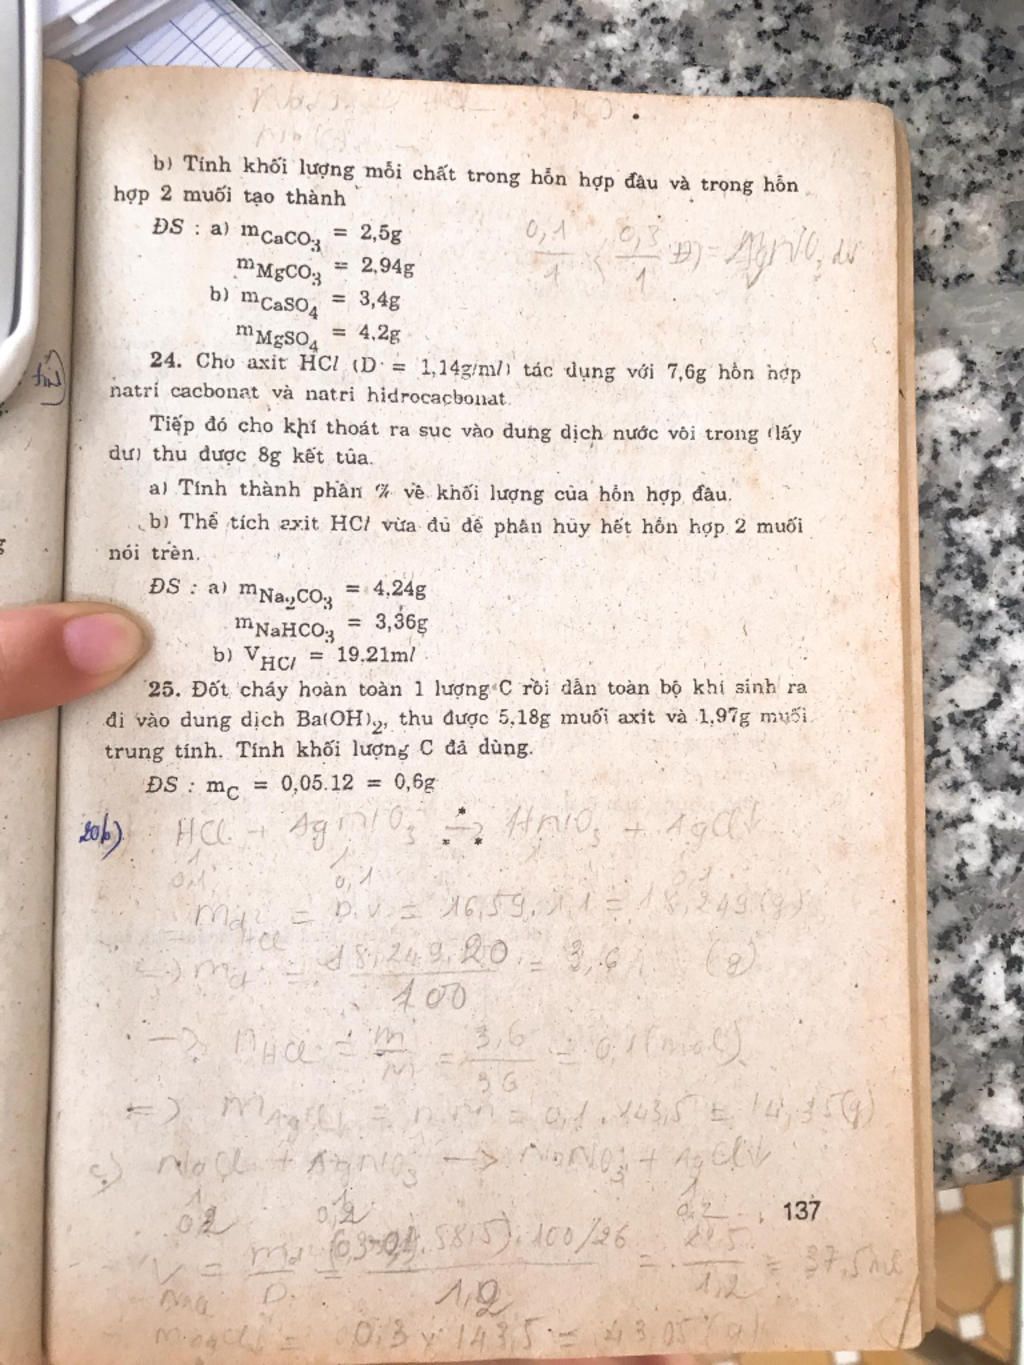 b) Tính khối lượng mỗi chất trong hỗn hợp đầu và trong hỗn
hợp 2 muối tạo thành
ĐS : a) mCaCO₃ = 2,5g
mMgCO₃ = 2,94g
b) mCaSO₄ = 3,4g
mMgSO₄ = 4,2g
24. Cho axit HCl (D = 1,14g/ml) tác dụng với 7,6g hỗn hợp
natri cacbonat và natri hidrocacbonat.
Tiếp đó cho khí thoát ra sục vào dung dịch nước vôi trong (lấy
dư) thu được 8g kết tủa.
a) Tính thành phần % về khối lượng của hỗn hợp đầu.
b) Thể tích axit HCl vừa đủ để phân hủy hết hỗn hợp 2 muối
nói trên.
ĐS : a) mNa₂CO₃ = 4,24g
mNaHCO₃ = 3,36g
b) VHCl = 19,21ml
25. Đốt cháy hoàn toàn 1 lượng C rồi dẫn toàn bộ khí sinh ra
đi vào dung dịch Ba(OH)₂, thu được 5,18g muối axit và 1,97g muối
trung tính. Tính khối lượng C đã dùng.
ĐS : mC = 0,05.12 = 0,6g
20b) HCl + AgNO₃ → HNO₃ + AgCl↓
0,1 0,1 0,1
= D.V = 16,59.1,1 = 18,249(g)
= 18,249.20 / 100 = 3,6 (g)
→ nHCl = m/M = 3,6/36 = 0,1(mol)
=> mAgCl = n.M = 0,1.143,5 = 14,35(g)
c) NaCl + AgNO₃ → NaNO₃ + AgCl↓
0,2 0,2 0,2
137
1,2 = 37,5ml
= 0,3 x 143,5 = 43,05 (g)